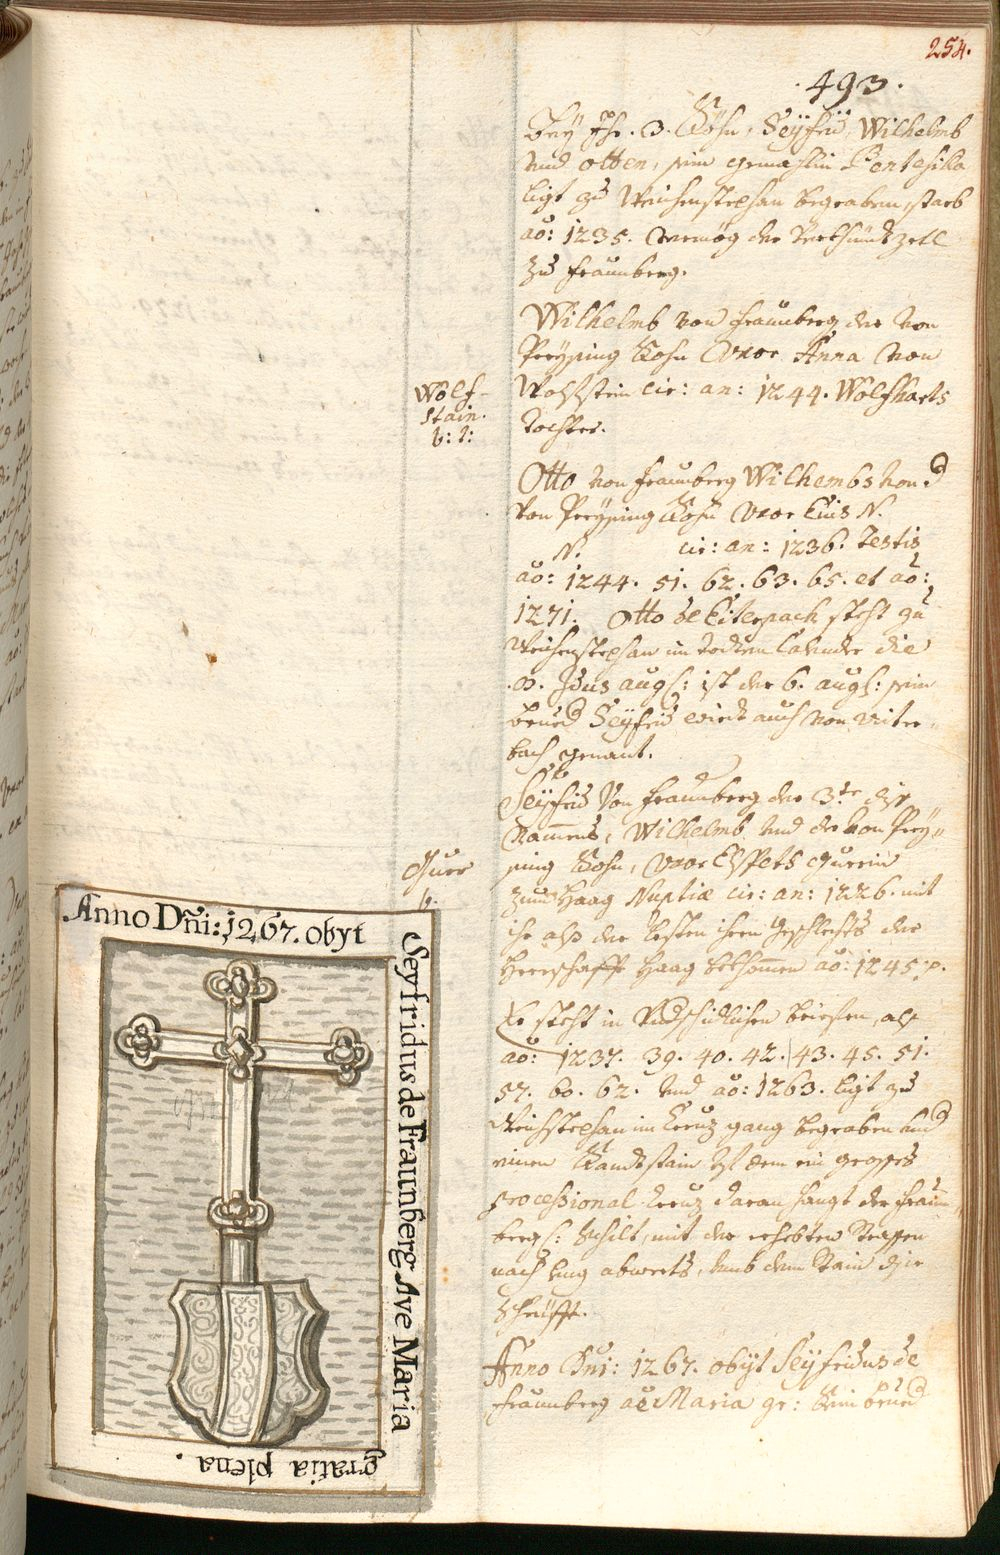 254.
. 493 .
bey Ihr . 3. Söhn, Seyfrid, Wilhelmb
und otten, sein gemachlin Pentesilea
ligt zu Weichenstephan begraben, starb
aõ: 1235. vermög der
zu fraunberg.
Wilhelmb von fraunberg des von
Preysing Sohn Uxor Anna von
Wolfstein cir: an: 1244. Wolfharts
tochter.
Wolf-
stain.
Otto von fraunberg Wilhembs von
von Preysing Sohn Uxor Eius N.
N. cir: an: 1236. testis
aõ: 1244. 51. 62. 63. 65. et aõ:
1271. Otto de Eiterpach steht zu
Weichenstephan im todten Calender die
8. Idus augs: ist der 6. augs: sein
brued Seyfrid wird auch von viter-
bach genant.
Seyfrid von fraunberg der 3.te diß
Nammens, Wilhelmb und der von Prey-
sing Sohn, Uxor Elspets Gurrin
zum Haag Nuptiæ cir: an: 1226. mit
ihr alß der lesten ihres geschlechts die
Herrschafft Haag bekhommen aõ: 1245. p.
Gurr
Er steht in undschidlichen brieffen, alß
aõ: 1237. 39. 40. 42. 43. 45. 51.
57. 60. 62. und aõ: 1263. ligt zu
Weichstephan im Creuz gang begraben und
einen Sandtstain ist dem ein grosses
processional Creuz daran hangt der fraun-
berg: schilt, mit der erhebten strassen
nach lengs abwerts, umb dem stain die
schrifft.
Anno Dni: 1267. obyt Seyfridus de
fraunberg ave Maria gr: Sein brued
Anno Dñi: 1267. obyt
Seyfridus de Fraunberg Ave Maria
gratia plena .